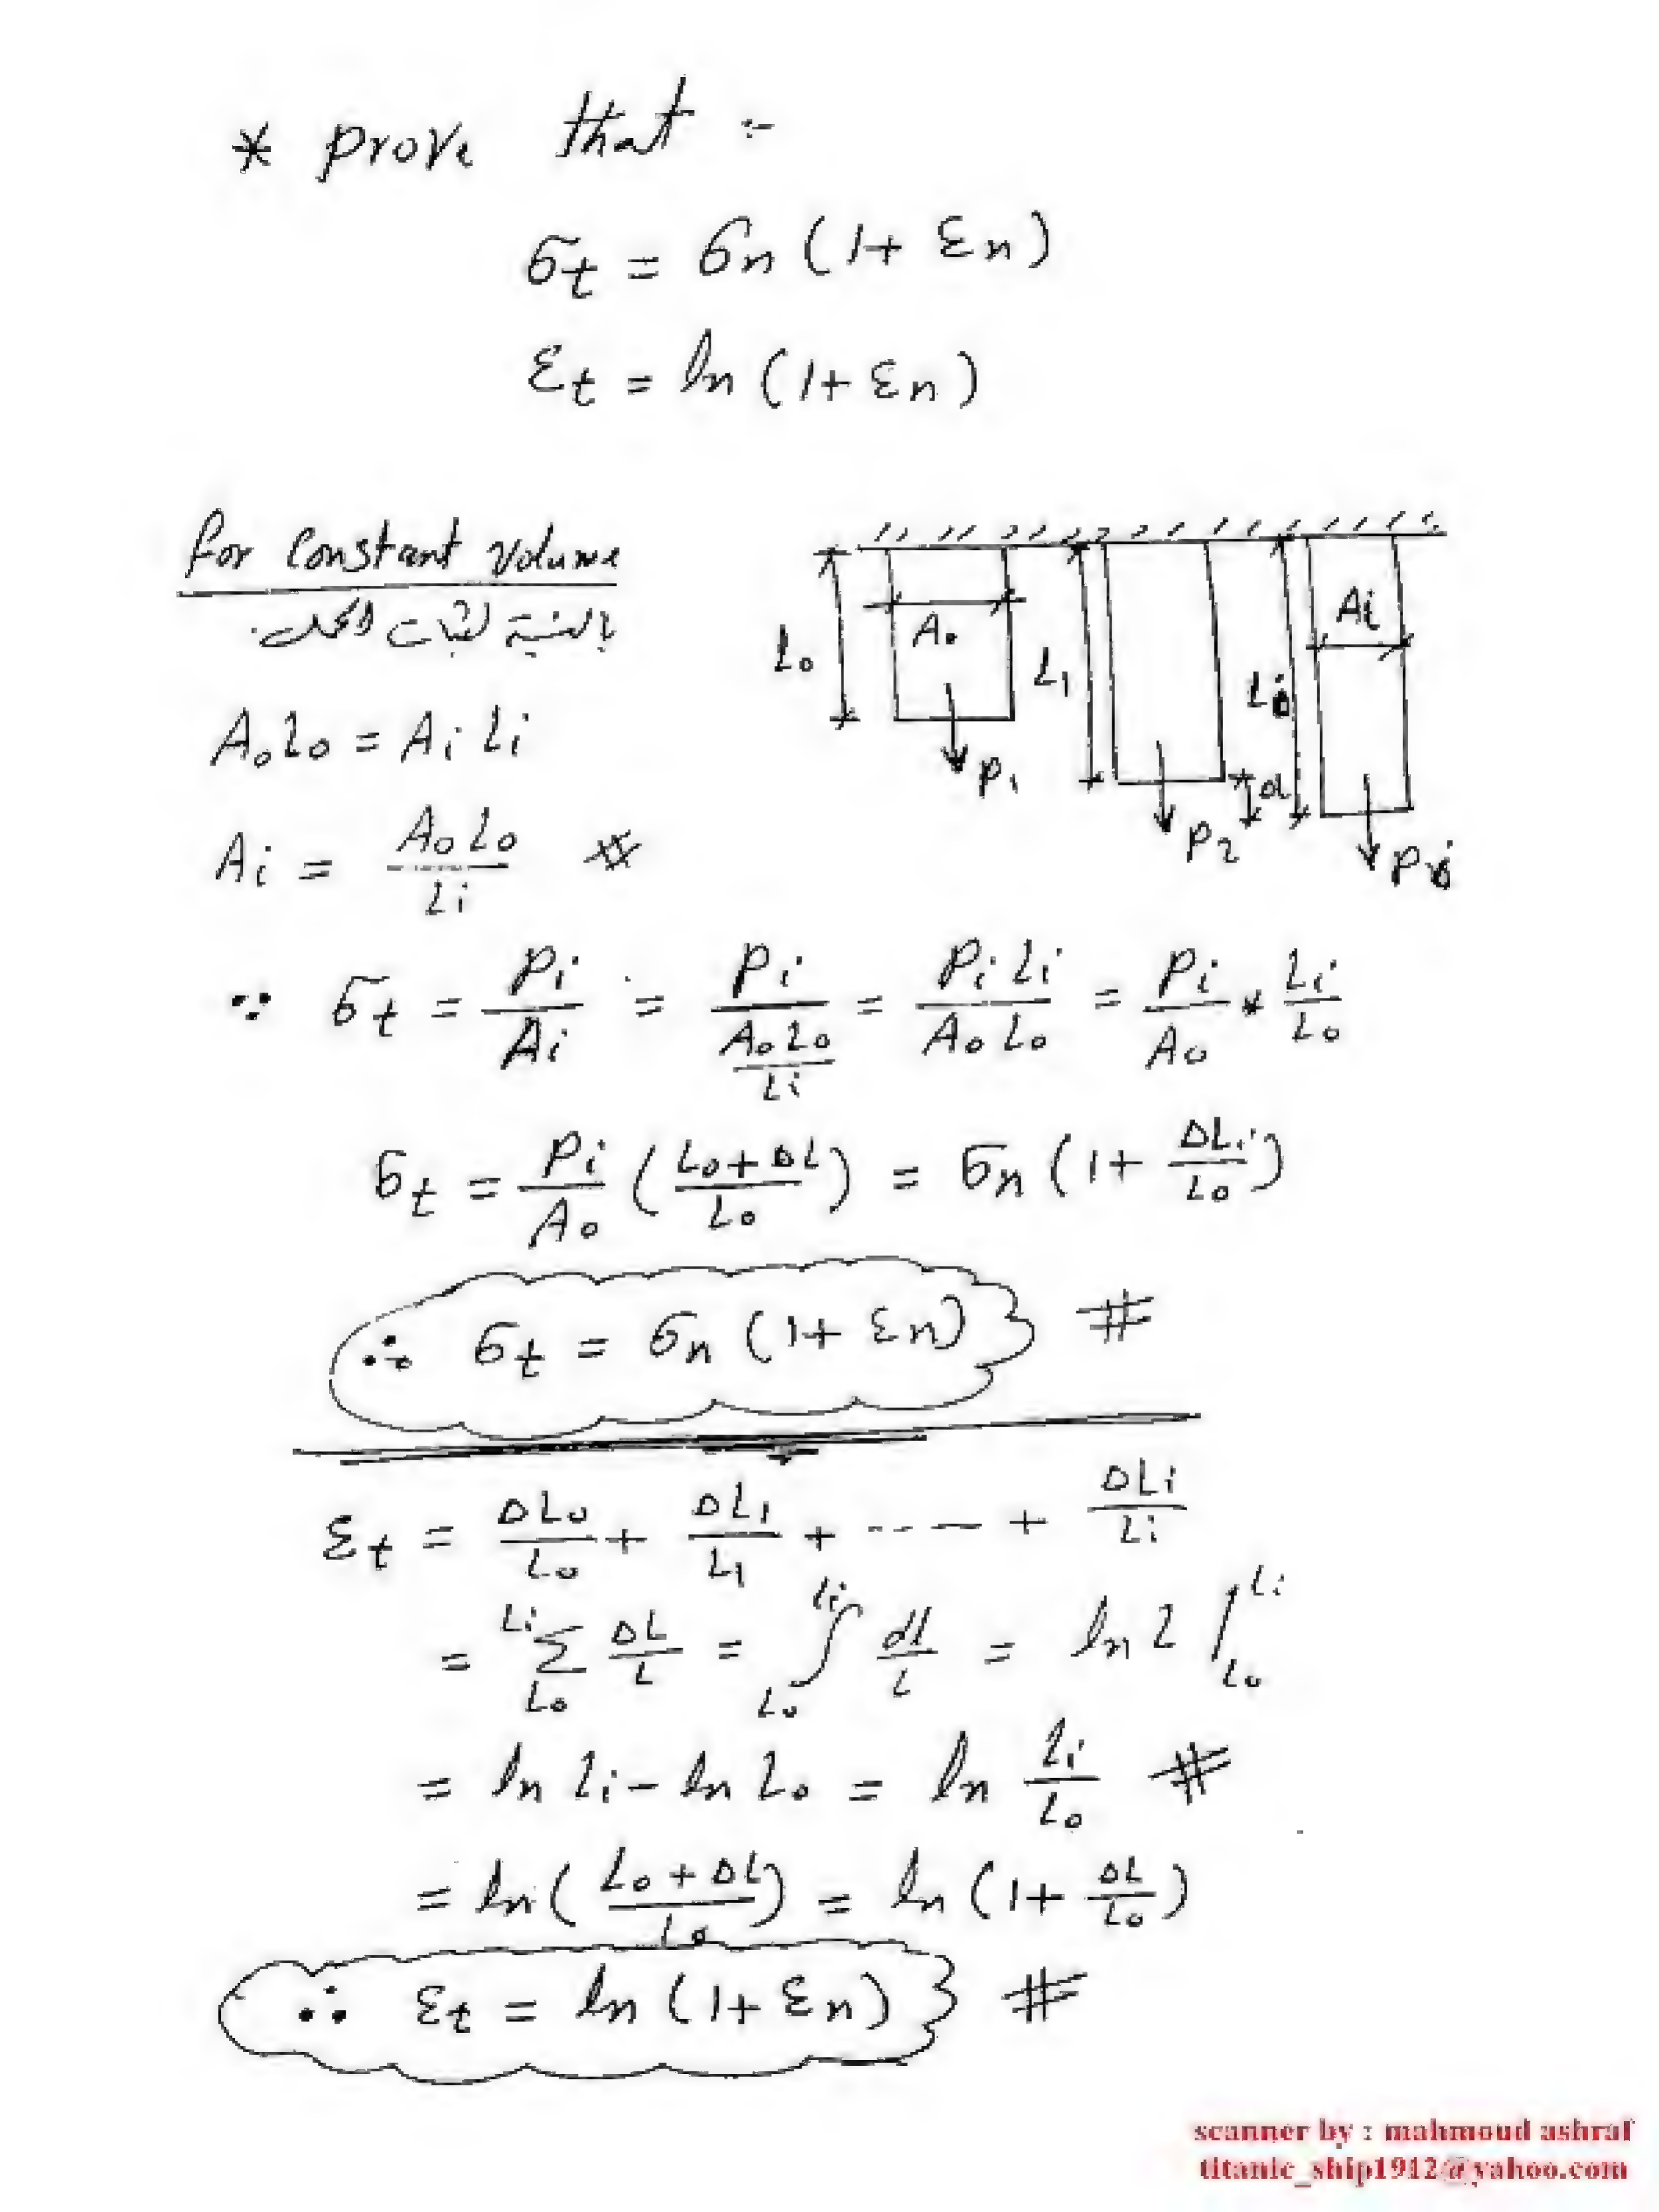 * prove that :-
σt = σn (1+ εn)
εt = ln (1+ εn)
for Constant volume
بالنسبة لثبات الحجم
A₀L₀ = Ai Li
Ai = A₀L₀ / Li #
L₀ A₀ P₁ L₁ P₂ Li Ai
∵ σt = Pi / Ai = Pi / (A₀L₀ / Li) = Pi Li / A₀L₀ = Pi / A₀ * Li / L₀
σt = Pi / A₀ ( (L₀+ΔL) / L₀ ) = σn (1+ ΔLi / L₀)
∴ σt = σn (1+ εn) #
εt = ΔL₀ / L₀ + ΔL₁ / L₁ + ---- + ΔLi / Li
= Σ_{L₀}^{Li} ΔL / L = ∫_{L₀}^{Li} dl / L = ln L |_{L₀}^{Li}
= ln Li - ln L₀ = ln Li / L₀ #
= ln ( (L₀ + ΔL) / L₀ ) = ln (1+ ΔL / L₀)
∴ εt = ln (1+ εn) #
scanner by : mahmoud ashraf
titanic_ship1912@yahoo.com